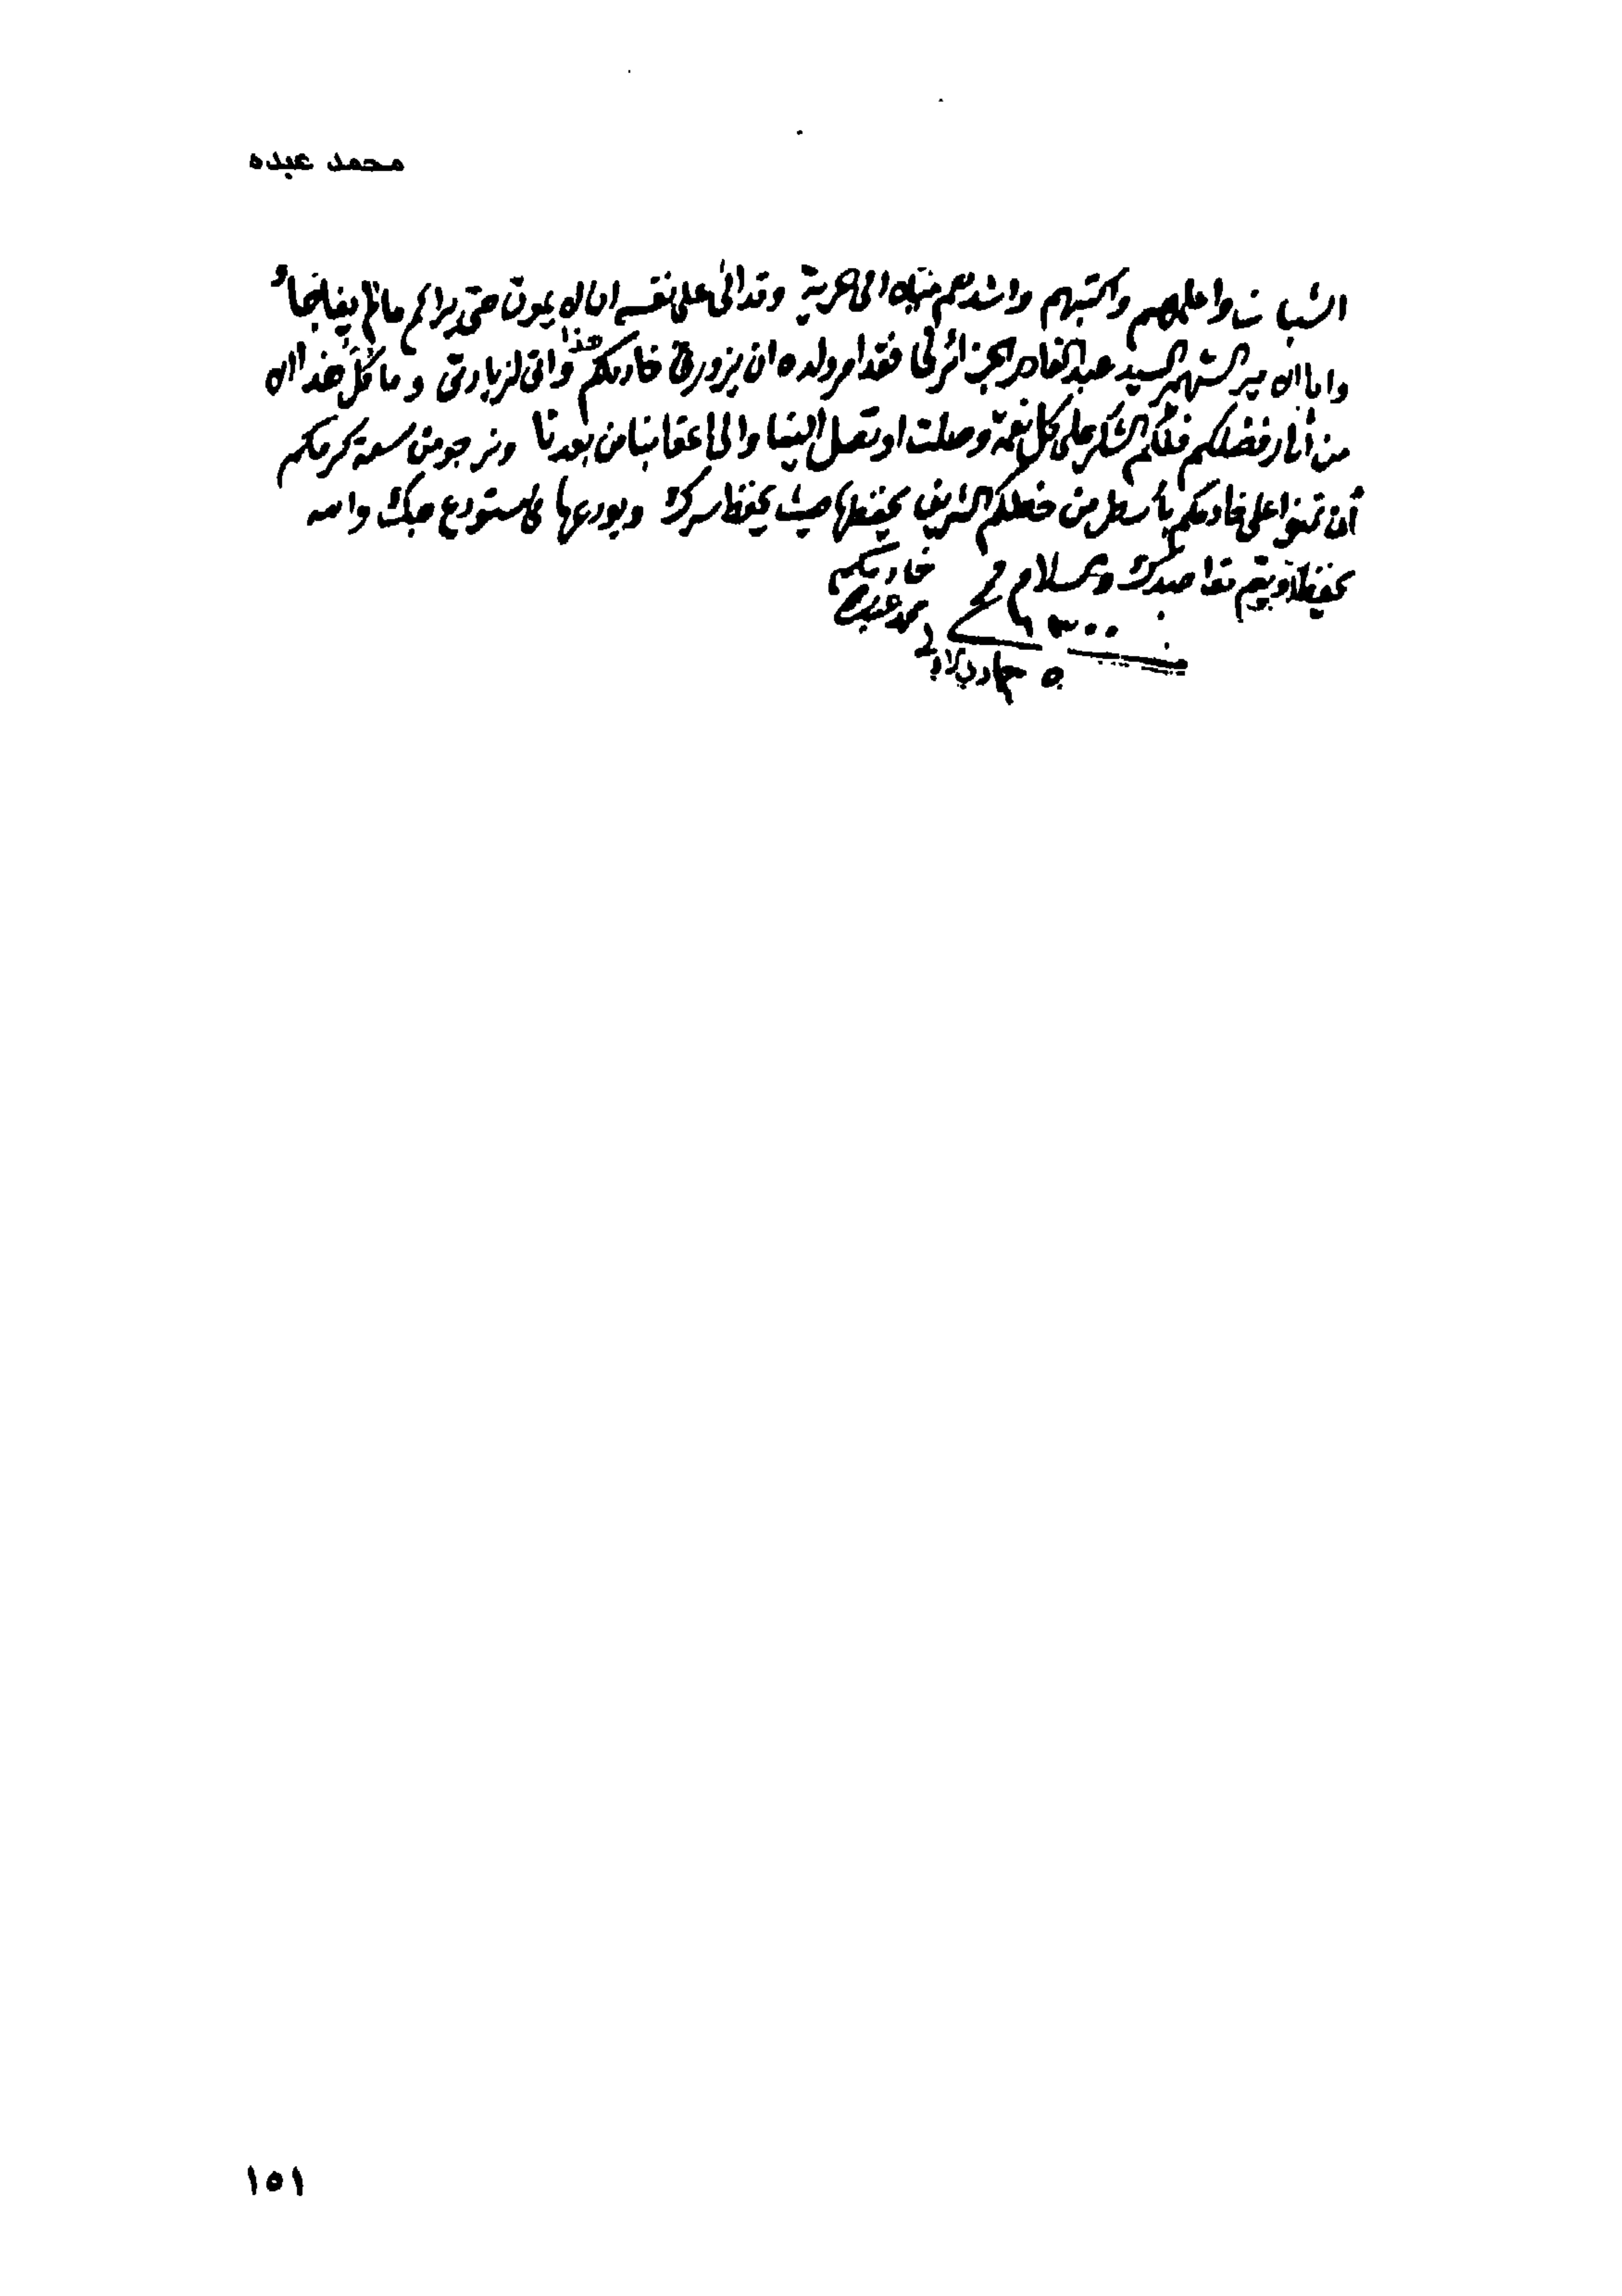 محمد عبده
الشبان واعلمهم واكتبهم واشدهم الى الحرية وقد الى على نفسه ان لا يموت حتى يراكم مالم يفاجأ
واما الامير الشهير السيد عبدالقادر الجزائرلى فقد امر ولده ان يزور خادمكم هذا واتى لزيارتى وما كل هذا الا
من أثار فضلكم فلكم الشكر على كل نعمة وصلت او تصل الينا والى اعقابنا من بعدنا ونرجو من سعة كرمكم
أن تمنوا على خادمكم بأسطر من خطكم الشريف يحفظها حيث يحفظ سرك ويودعها مستودع حبك والله
يحفظك ويتم مقاصدك والسلام
خادمكم
محمد عبده
٥ جمادى الاولى ١٣٠٠
١٥١